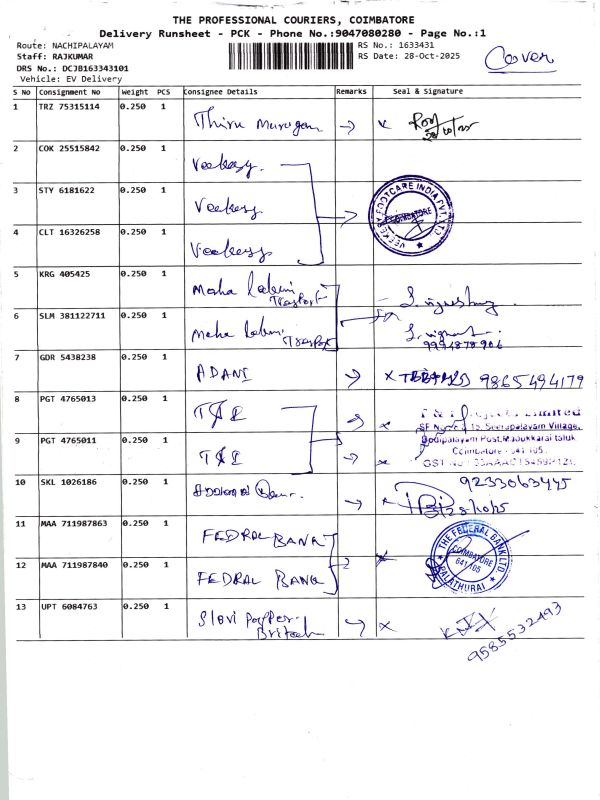 THE PROFESSIONAL COURIERS, COIMBATORE
Delivery Runsheet - PCK - Phone No.:9047080280 - Page No.:1
Route: NACHIPALAYAM
RS No.: 1633431
Staff: RAJKUMAR
RS Date: 28-Oct-2025
Cover
DRS No.: DCJB163343101
Vehicle: EV Delivery
S No Consignment No Weight PCS Consignee Details Remarks Seal & Signature
1 TRZ 75315114 0.250 1 Thiru Murugan
2 COK 25515842 0.250 1 Veekesy
3 STY 6181622 0.250 1 Veekesy
4 CLT 16326258 0.250 1 Veekesy
VEEKESY FOOTCARE INDIA PVT. LTD
COIMBATORE
5 KRG 405425 0.250 1 Maha Laksmi Transport
6 SLM 381122711 0.250 1 Maha Laksmi Transport
7 GDR 5438238 0.250 1 ADANI 9865494179
8 PGT 4765013 0.250 1 T&I
9 PGT 4765011 0.250 1 T&I
15, Seerapalayam Village,
Podipalayam Post, Madukkarai taluk
Coimbatore - 641 105
10 SKL 1026186 0.250 1 9233063445
11 MAA 711987863 0.250 1 FEDRAL BANK
12 MAA 711987840 0.250 1 FEDRAL BANK
THE FEDERAL BANK LTD
COIMBATORE
641 105
PALATHURAI
13 UPT 6084763 0.250 1
9585532493